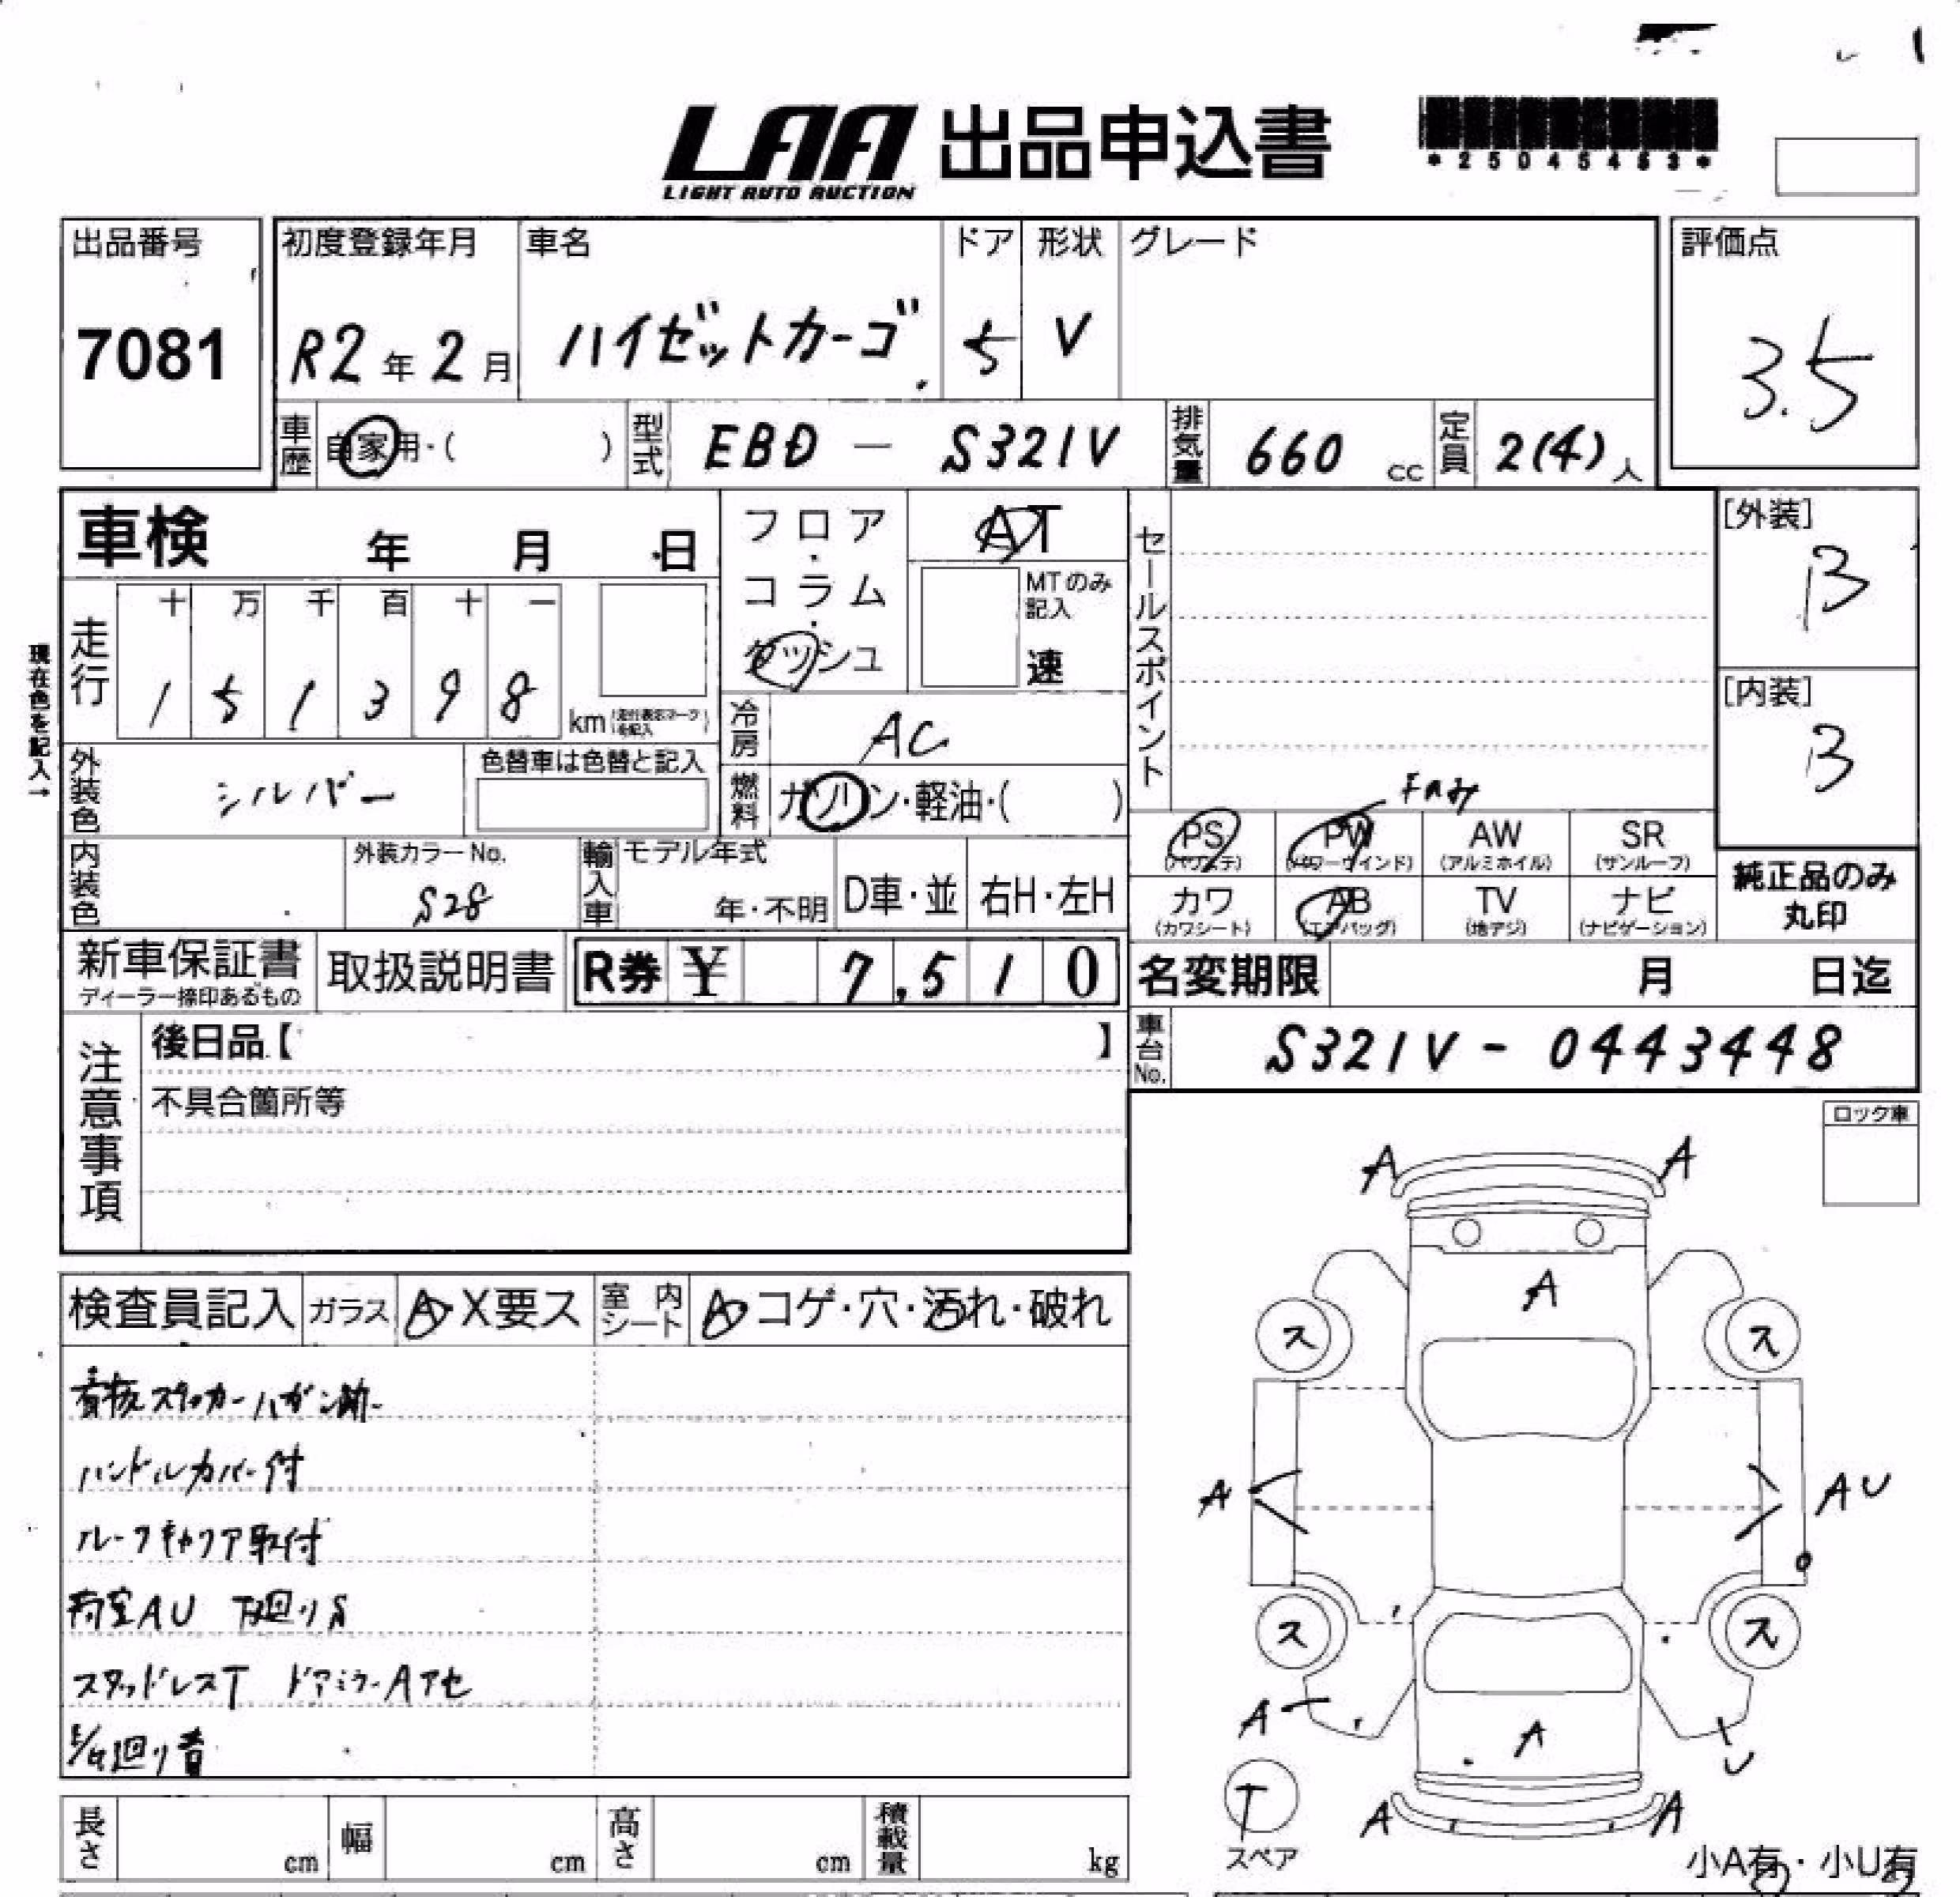 LAA 出品申込書
LIGHT AUTO AUCTION
*25045453*
出品番号 初度登録年月 車名 ドア 形状 グレード 評価点
7081 R2年2月 ハイゼットカーゴ 5 V 3.5
車歴 自家用・( ) 型式 EBD - S321V 排気量 660 cc 定員 2(4)人
車検 年 月 日 フロア・コラム・ダッシュ AT
MTのみ記入 速
セールスポイント
[外装] B
[内装] B
現在色を記入→
走行 十 万 千 百 十 一
1 5 1 3 9 8 km (走行表示マークを記入)
冷房 AC
外装色 シルバー 色替車は色替と記入 燃料 ガソリン・軽油・( )
PS (パワステ) PW (パワーウインド) AW (アルミホイル) SR (サンルーフ)
カワ (カワシート) AB (エアバッグ) TV (地デジ) ナビ (ナビゲーション)
純正品のみ丸印
内装色 外装カラーNo. S28 輸入車 モデル年式 年・不明 D車・並 右H・左H
新車保証書 ディーラー捺印あるもの 取扱説明書 R券 ¥ 7,510 名変期限 月 日迄
注意事項 後日品【 】 車台No. S321V - 0443448
不具合箇所等
ロック車
検査員記入 ガラス A・X要ス 室内シート A・コゲ・穴・汚れ・破れ
看板ステッカーハガシ跡
ハンドルカバー付
ルーフキャリア取付
荷室AU 下廻りS
スタッドレスT ドアミラーAアセ
E/G廻り音
A A
A
ス ス
A AU
ス ス
A A U
T A A
スペア
小A有・小U有
長さ cm 幅 cm 高さ cm 積載量 kg